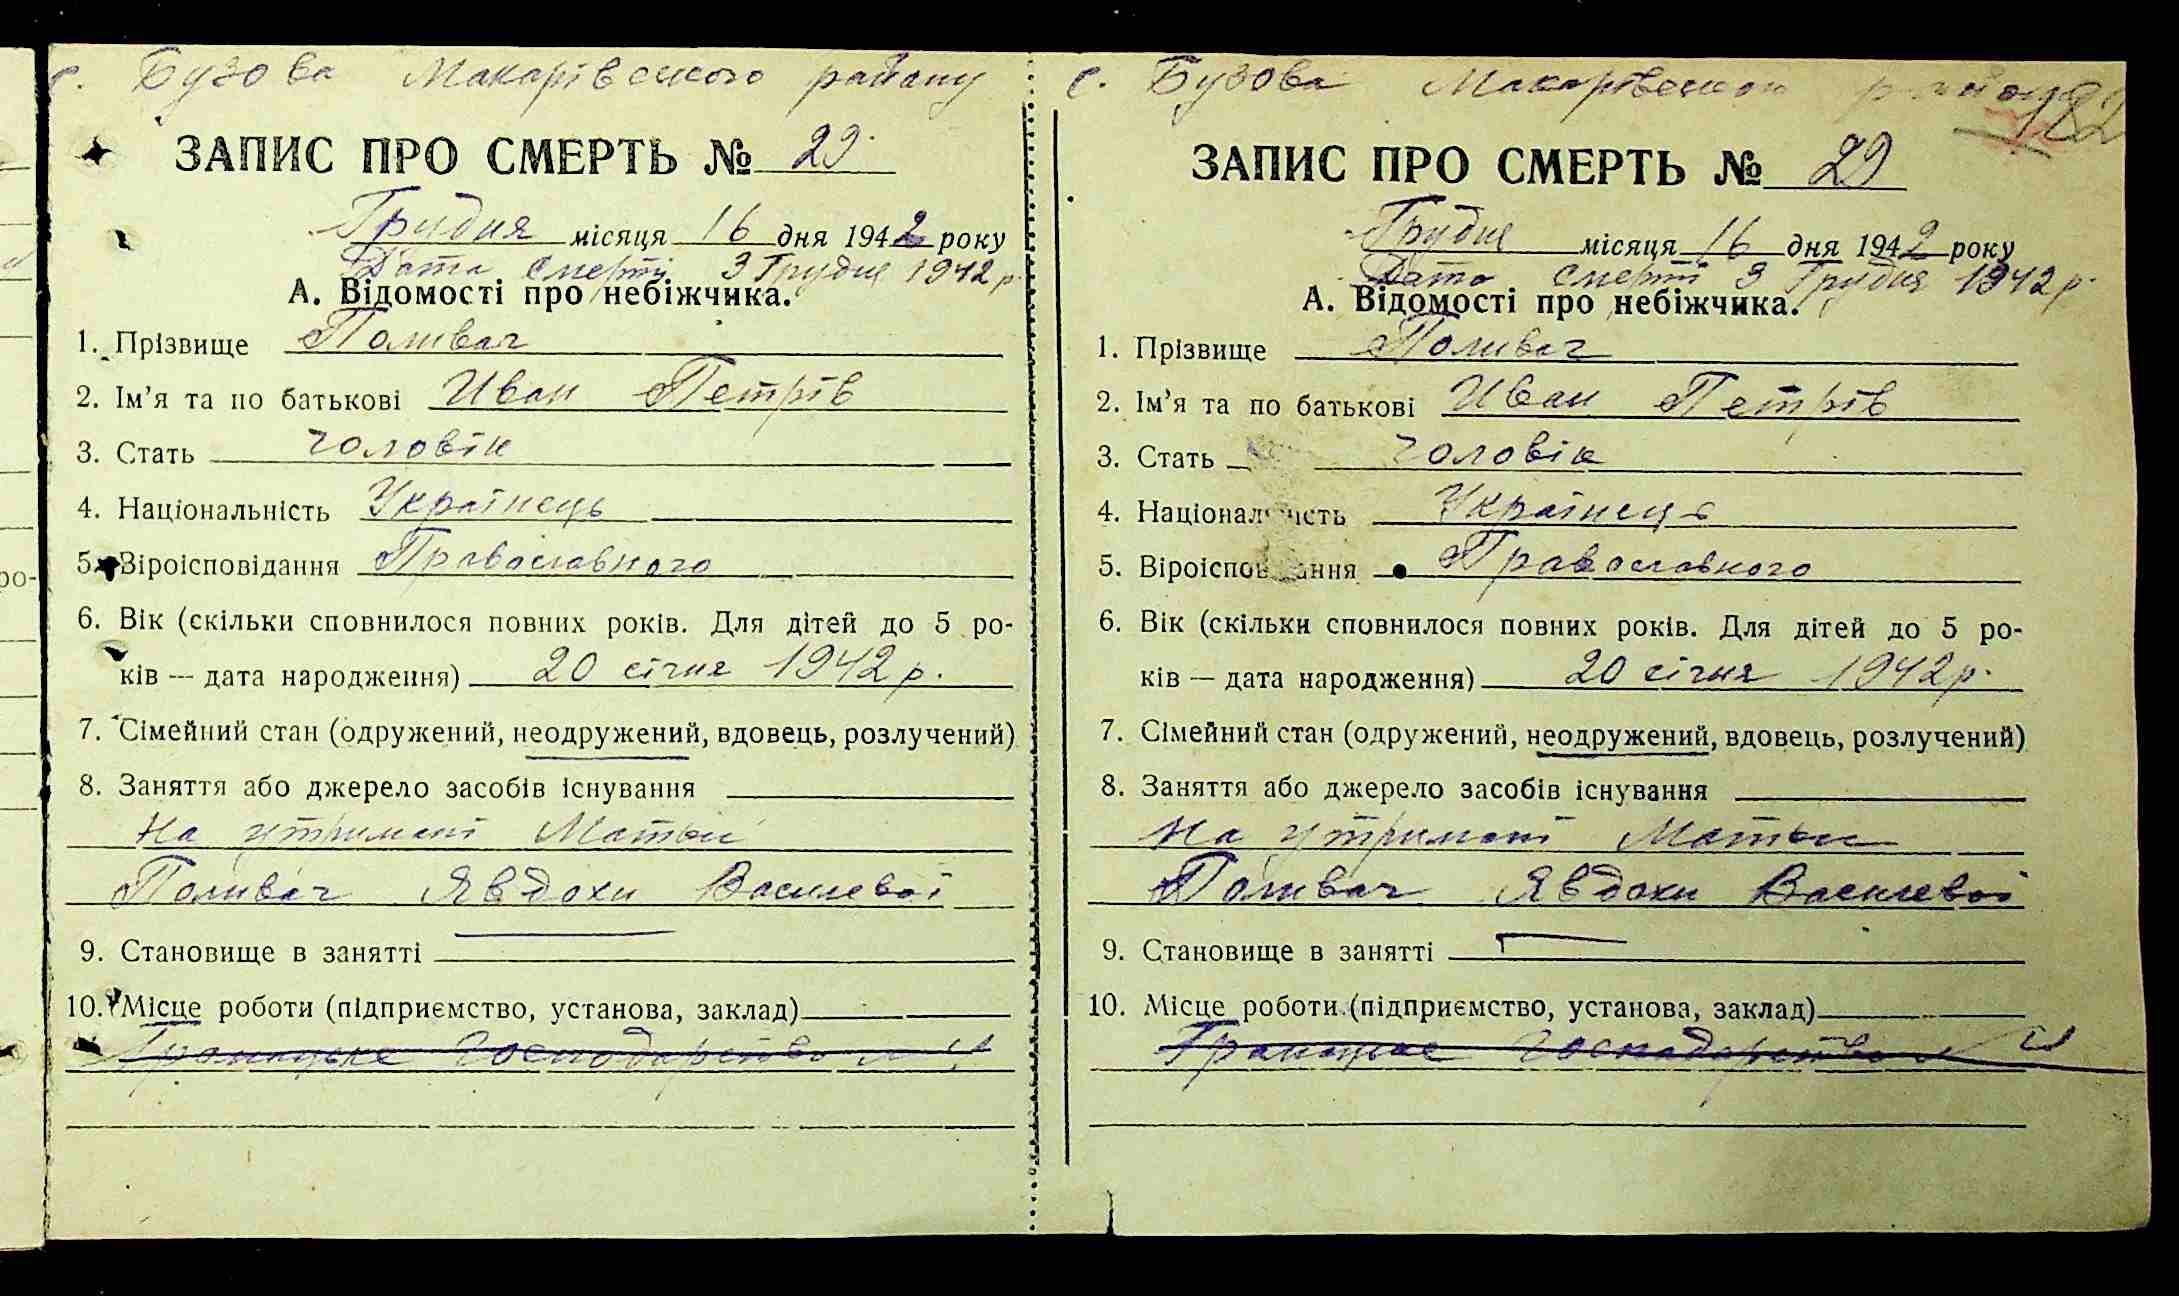 с. Бузова Макарівського району
ЗАПИС ПРО СМЕРТЬ № 29.
Грудня місяця 16 дня 1942 року
Дата смерти 3 Грудня 1942 р.
А. Відомості про небіжчика.
1. Прізвище Поливач
2. Ім’я та по батькові Иван Петрів
3. Стать чоловік
4. Національність Українець
5. Віроісповідання Православного
6. Вік (скільки сповнилося повних років. Для дітей до 5 ро-
ків — дата народження) 20 січня 1942 р.
7. Сімейний стан (одружений, неодружений, вдовець, розлучений)
8. Заняття або джерело засобів існування
На утримані Матьки
Поливач Явдохи Василевої
9. Становище в занятті
10. Місце роботи (підприємство, установа, заклад)
Громадське господарство
ро-
с. Бузова Макарівського району
182
ЗАПИС ПРО СМЕРТЬ № 29
Грудня місяця 16 дня 1942 року
Дата смерті 3 Грудня 1942 р.
А. Відомості про небіжчика.
1. Прізвище Поливач
2. Ім’я та по батькові Иван Петрів
3. Стать чоловік
4. Національність Українець
5. Віроісповідання Православного
6. Вік (скільки сповнилося повних років. Для дітей до 5 ро-
ків — дата народження) 20 січня 1942 р.
7. Сімейний стан (одружений, неодружений, вдовець, розлучений)
8. Заняття або джерело засобів існування
На утримані Матьки
Поливач Явдохи Василевої
9. Становище в занятті
10. Місце роботи (підприємство, установа, заклад)
Громадське господарство